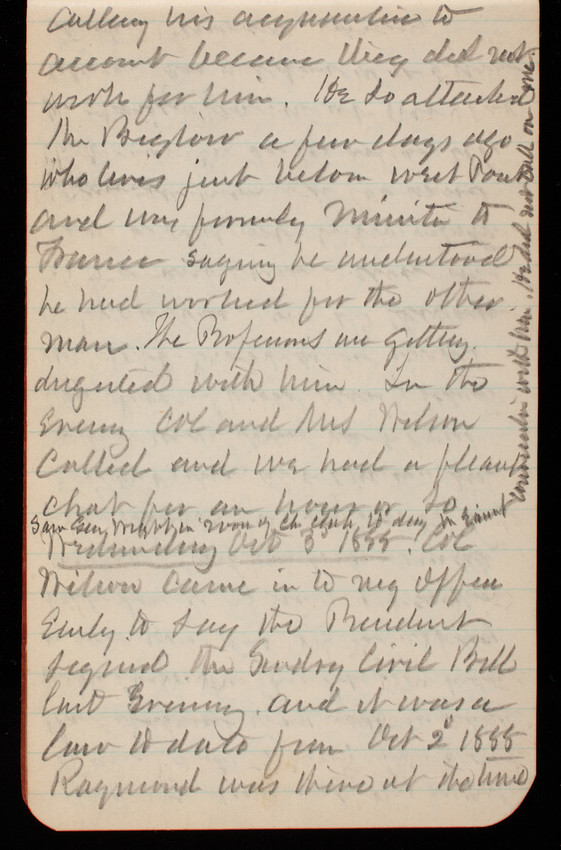 calling his acquaintance to
account because they did not
work for him. He so attacked
Mr Bigelow a few days ago
who lives just below West Point
and was formerly Minister to
France saying he understood
he had worked for the other
man. The Professors are getting
disgusted with him. In the
Evening Col and Mrs Wilson
Called and we had a pleasant
chat for an hour or so
Saw Gen Wright in room of Ch Club to day
Wednesday Oct 3d 1888. Col
Wilson came in to my Office
Early to say the President
signed the Sundry Civil Bill
last Evening. and it was a
law to date from Oct 2d 1888
Raymond was there at the time
with him. He did not call on me.